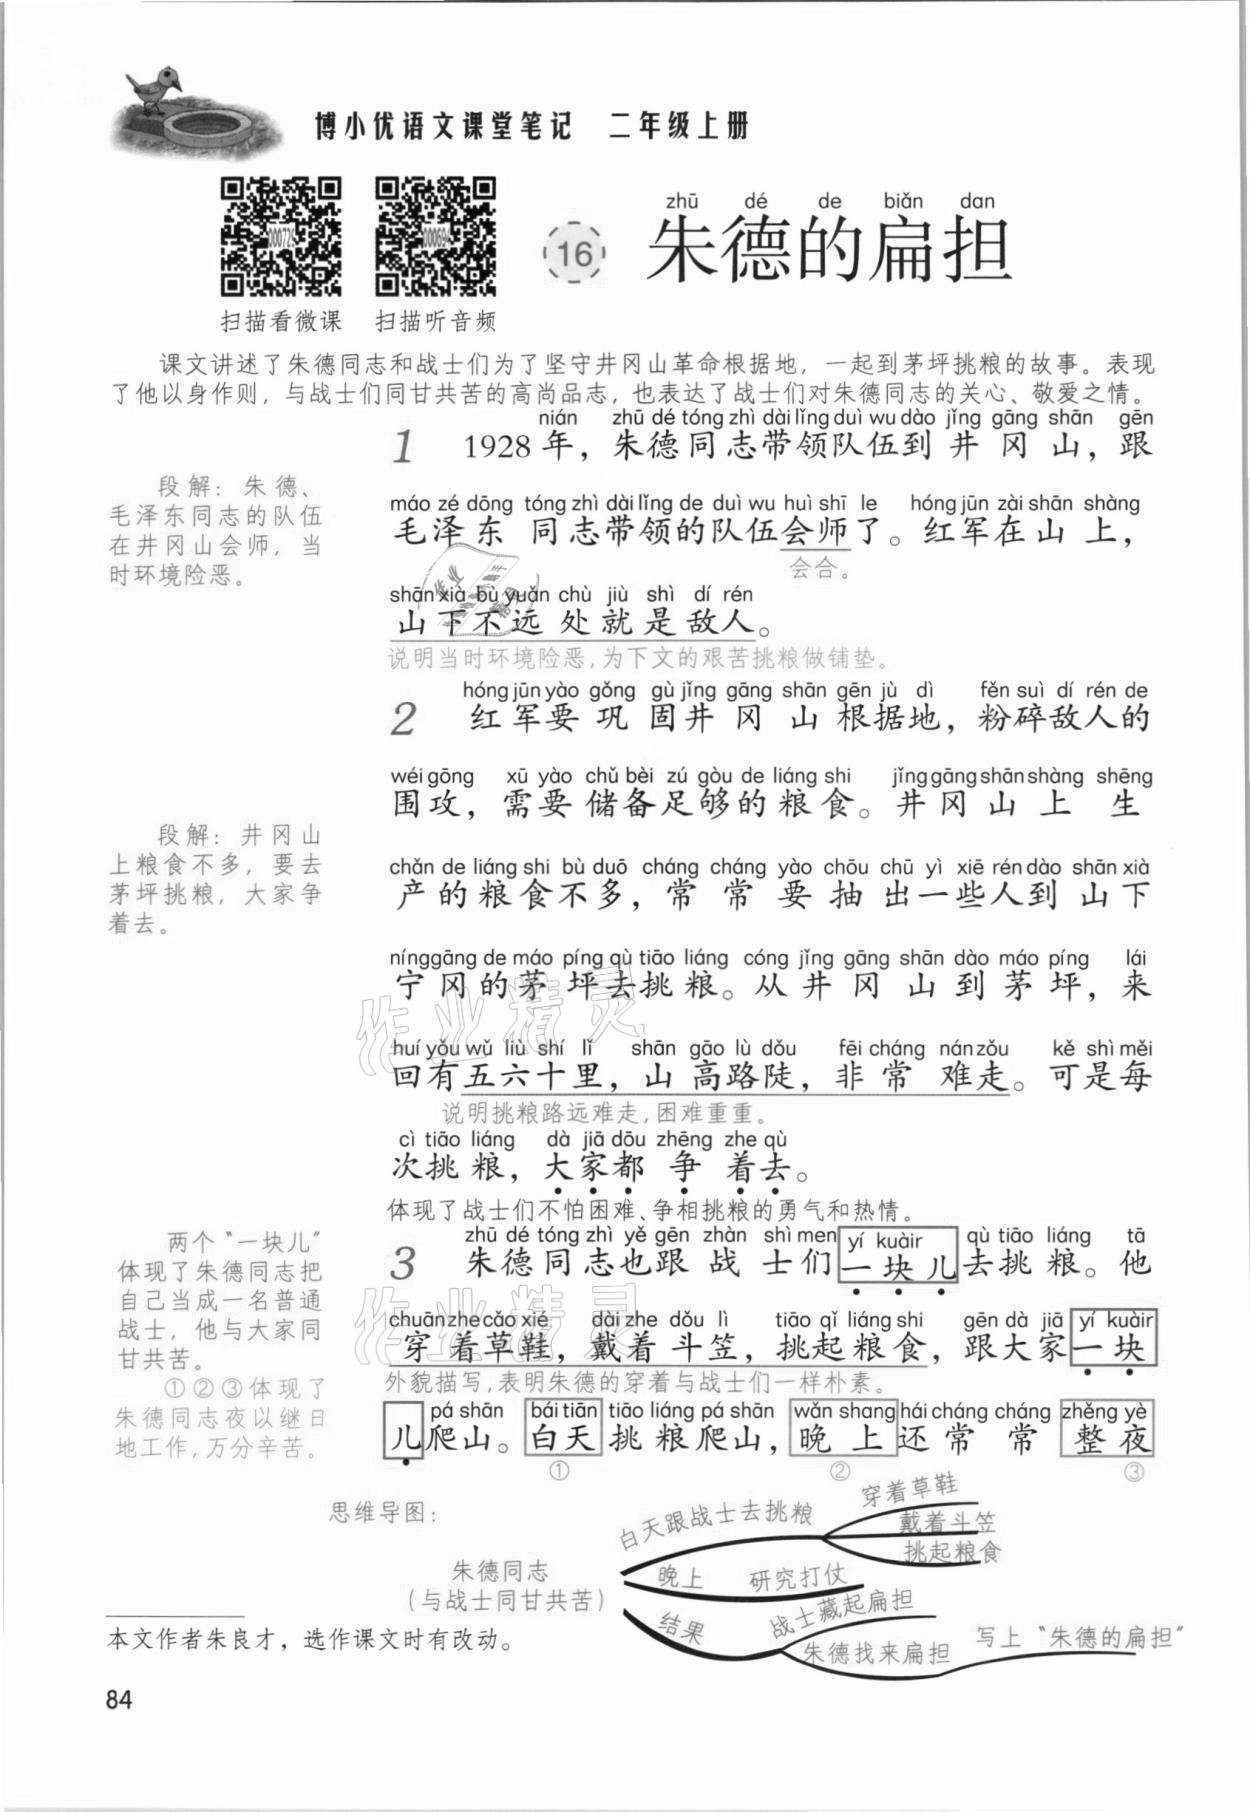 博小优语文课堂笔记 二年级上册
000725
000694
扫描看微课 扫描听音频
zhū dé de biǎn dan
16 朱德的扁担
课文讲述了朱德同志和战士们为了坚守井冈山革命根据地，一起到茅坪挑粮的故事。表现
了他以身作则，与战士们同甘共苦的高尚品志，也表达了战士们对朱德同志的关心、敬爱之情。
nián zhū dé tóng zhì dài lǐng duì wu dào jǐng gāng shān gēn
1 1928 年，朱德同志带领队伍到井冈山，跟
段解：朱德、
毛泽东同志的队伍
在井冈山会师，当
时环境险恶。
máo zé dōng tóng zhì dài lǐng de duì wu huì shī le hóng jūn zài shān shàng
毛泽东同志带领的队伍会师了。红军在山上，
会合。
shān xià bù yuǎn chù jiù shì dí rén
山下不远处就是敌人。
说明当时环境险恶，为下文的艰苦挑粮做铺垫。
hóng jūn yào gǒng gù jǐng gāng shān gēn jù dì fěn suì dí rén de
2 红军要巩固井冈山根据地，粉碎敌人的
wéi gōng xū yào chǔ bèi zú gòu de liáng shi jǐng gāng shān shàng shēng
围攻，需要储备足够的粮食。井冈山上生
段解：井冈山
上粮食不多，要去
茅坪挑粮，大家争
着去。
chǎn de liáng shi bù duō cháng cháng yào chōu chū yì xiē rén dào shān xià
产的粮食不多，常常要抽出一些人到山下
níng gāng de máo píng qù tiāo liáng cóng jǐng gāng shān dào máo píng lái
宁冈的茅坪去挑粮。从井冈山到茅坪，来
huí yǒu wǔ liù shí lǐ shān gāo lù dǒu fēi cháng nán zǒu kě shì měi
回有五六十里，山高路陡，非常难走。可是每
说明挑粮路远难走，困难重重。
cì tiāo liáng dà jiā dōu zhēng zhe qù
次挑粮，大家都争着去。
体现了战士们不怕困难、争相挑粮的勇气和热情。
zhū dé tóng zhì yě gēn zhàn shì men yí kuàir qù tiāo liáng tā
3 朱德同志也跟战士们一块儿去挑粮。他
两个“一块儿”
体现了朱德同志把
自己当成一名普通
战士，他与大家同
甘共苦。
①②③体现了
朱德同志夜以继日
地工作，万分辛苦。
chuān zhe cǎo xié dài zhe dǒu lì tiāo qǐ liáng shi gēn dà jiā yí kuàir
穿着草鞋，戴着斗笠，挑起粮食，跟大家一块
外貌描写，表明朱德的穿着与战士们一样朴素。
pá shān bái tiān tiāo liáng pá shān wǎn shang hái cháng cháng zhěng yè
儿爬山。白天挑粮爬山，晚上还常常整夜
① ② ③
思维导图：
朱德同志
（与战士同甘共苦）
白天跟战士去挑粮
穿着草鞋
戴着斗笠
挑起粮食
晚上 研究打仗
结果
战士藏起扁担
朱德找来扁担 写上“朱德的扁担”
本文作者朱良才，选作课文时有改动。
84
作业精灵
作业精灵